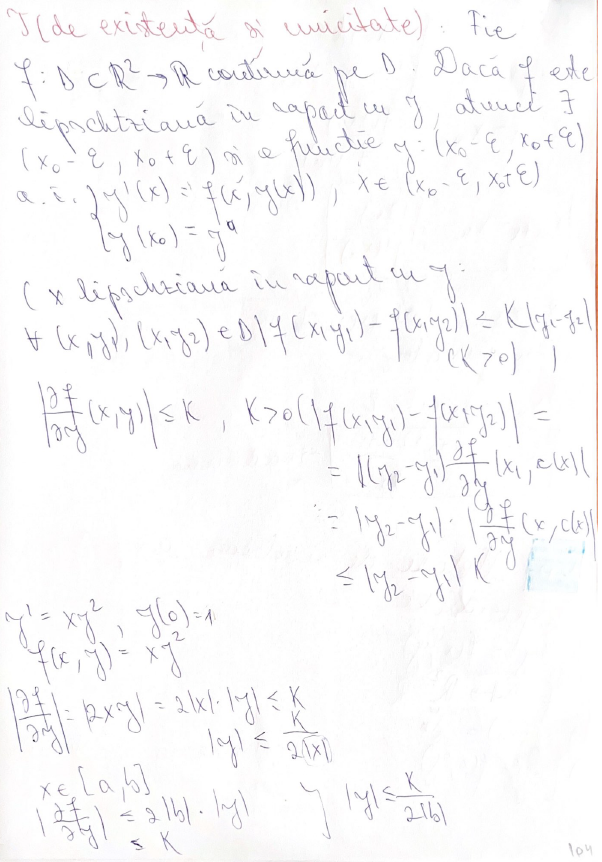 T(de existență și unicitate): Fie
f: D ⊂ ℝ² → ℝ continuă pe D. Dacă f este
lipschtziană în raport cu y, atunci ∃
(x₀-ε, x₀+ε) și o funcție y: (x₀-ε, x₀+ε)
a. î. { y'(x) = f(x, y(x)), x ∈ (x₀-ε, x₀+ε)
{ y(x₀) = y⁰
( x lipschziană în raport cu y:
∀ (x, y₁), (x, y₂) ∈ D |f(x, y₁) - f(x, y₂)| ≤ K|y₁-y₂|
(K > 0)
|∂f/∂y (x, y)| ≤ K, K > 0 (|f(x, y₁) - f(x, y₂)| =
= |(y₂-y₁) ∂f/∂y (x, c(x)|
= |y₂-y₁| · |∂f/∂y (x, c(x)|
≤ |y₂-y₁| K
y' = xy², y(0)=1
f(x, y) = xy²
|∂f/∂y| = |2xy| = 2|x|·|y| ≤ K
|y| ≤ K/2|x|
x ∈ [a, b]
|∂f/∂y| ≤ 2|b|·|y| } |y| ≤ K/2|b|
≤ K
104